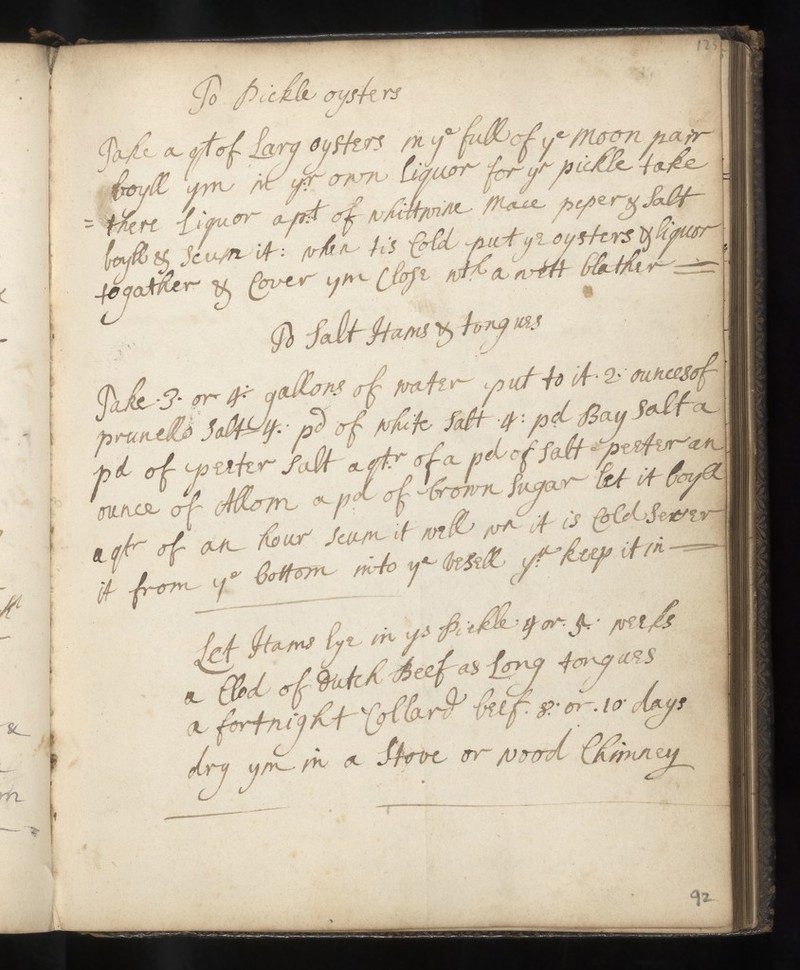 125
To Pickle oysters
Take a qt of Larg oysters in ye full of ye moon parr
boyll ym in yr own Liquor for yr pickle take
= there Liquor a pnt of whittwine mace peper & Salt
boyll & Scum it: when tis Cold put ye oysters & liquor
togather & Cover ym Close wth a wett blather =
To Salt Hams & tongues
Take .3. or 4: gallons of water put to it .2. ounces of
prunello Salt 4: pd of white Salt .4: pd Bay Salt a
pd of peeter Salt a qtr of a pd of Salt peeter an
ounce of Allom a pd of brown Sugar let it boyll
a qtr of an hour Scum it well wn it is Cold
it from ye bottom into ye vesell yu keep it in
Let Hams lye in ys Pickle 4 or .5. weeks
a Clod of Dutch Beef as Long tongues
a fortnight Collard beef .8. or .10 days
dry ym in a Stove or wood Chimney
92